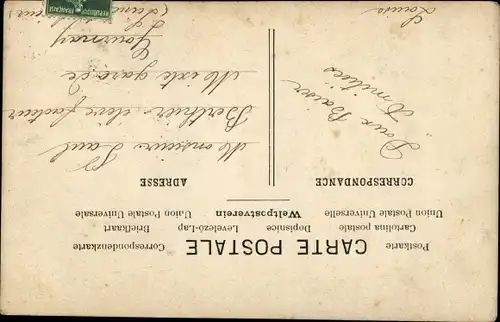 CARTE POSTALE
Postkarte
Correspondenzkarte
Cartolina postale
Dopisnice
Levelező-Lap
Briefkaart
Union Postale Universelle
Weltpostverein
Union Postale Universale
CORRESPONDANCE
ADRESSE
Doux Baiser
Amitiées
Louis
Monsieur Paul
Berthier élève facteur
Mixte gare de
Gournay